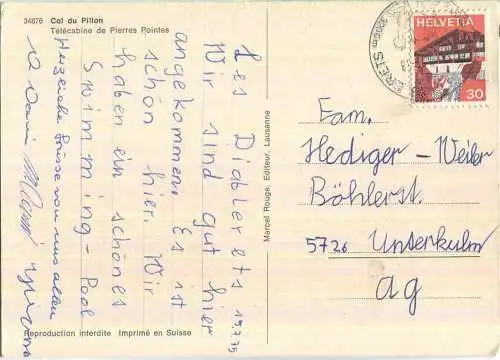 34876 Col du Pillon
Télécabine de Pierres Pointes
Les Diablerets 19.7.75
Wir sind gut hier
angekommen. Es ist
schön hier. Wir
haben ein schönes
Swimming-Pool
Herzliche Grüsse von uns allen
Reproduction interdite Imprimé en Suisse
Marcel Rouge, Editeur, Lausanne
HELVETIA
30
Fam.
Hediger-Weiler
Böhlerst.
5726 Unterkulm
AG